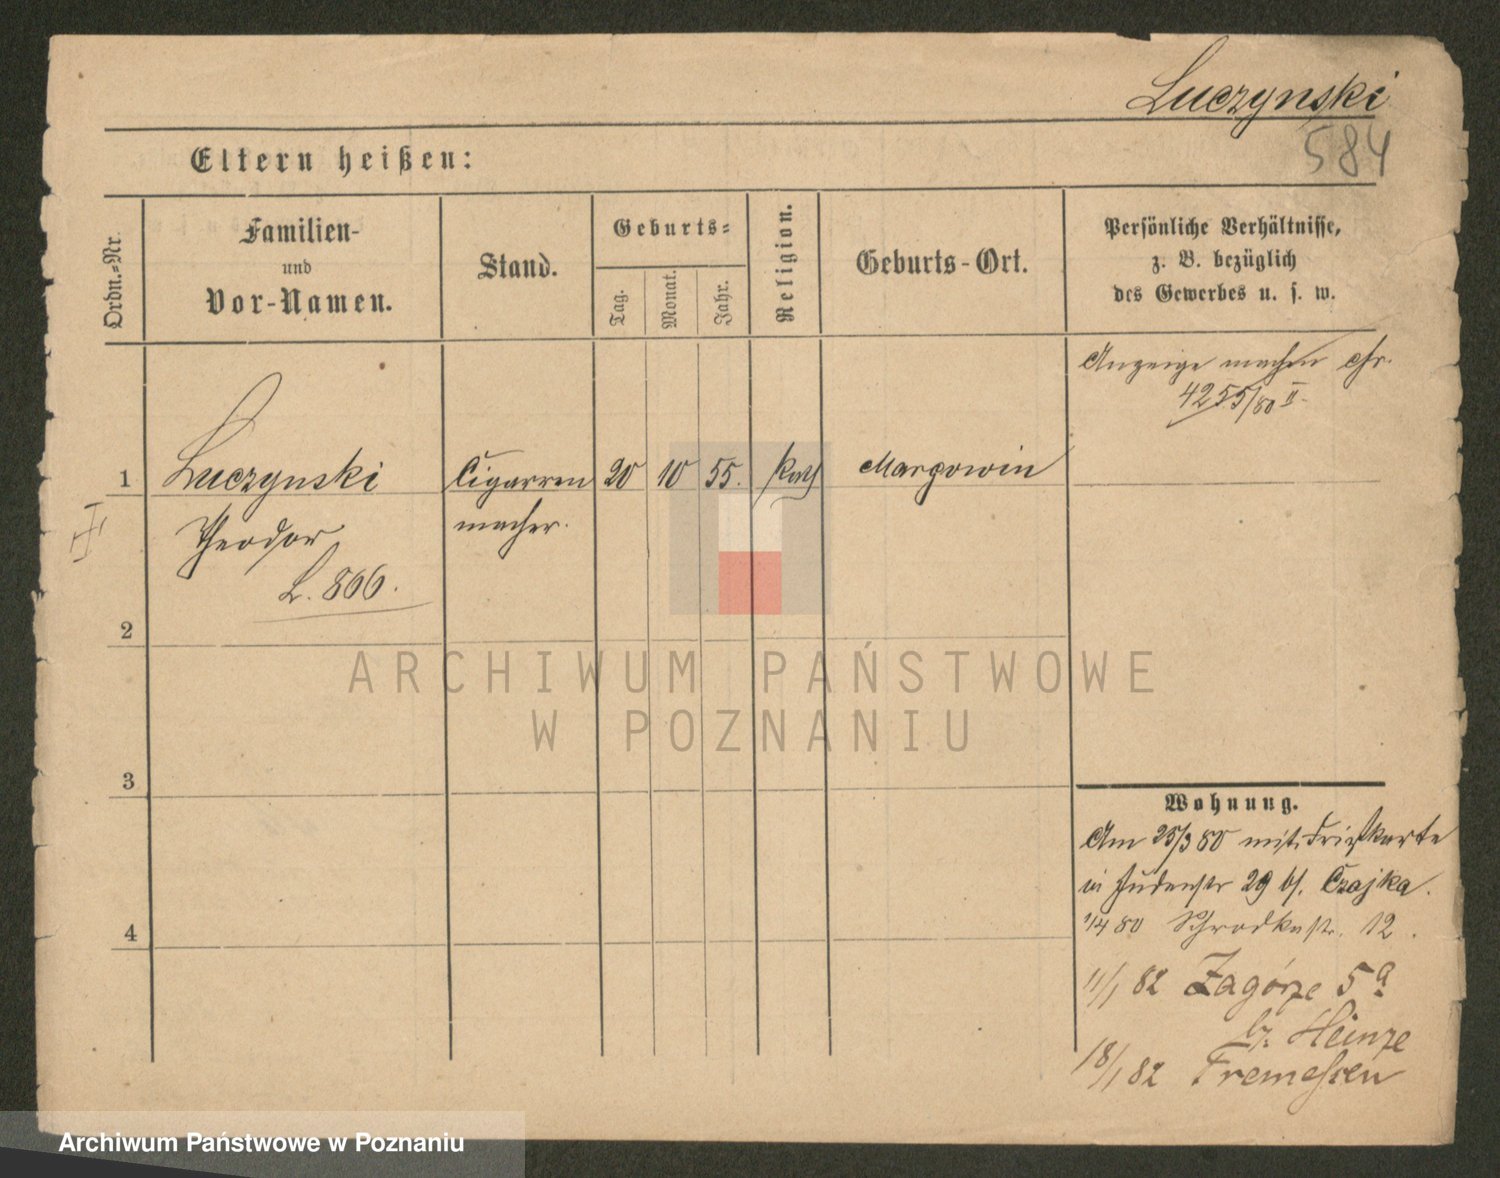 Luczynski
584
Eltern heißen:
Ordn.-Nr.
Familien-
und
Vor-Namen.
Stand.
Geburts-
Tag.
Monat.
Jahr.
Religion.
Geburts-Ort.
Persönliche Verhältnisse,
z. B. bezüglich
des Gewerbes u. s. w.
Anzeige machen cfr.
4255/80 II
1 Luczynski Cigarren 20 10 55. Kath Margowin
Theodor macher.
L. 866.
2
3
4
Wohnung.
Am 25/3 80 mit
in Judenstr 29 bs. Czajka.
1/4 80 Schrodkastr. 12.
11/1 82 Zagórze 5a
bz. Heinze
18/1 82 Tremessen
ARCHIWUM PAŃSTWOWE
W POZNANIU
Archiwum Państwowe w Poznaniu